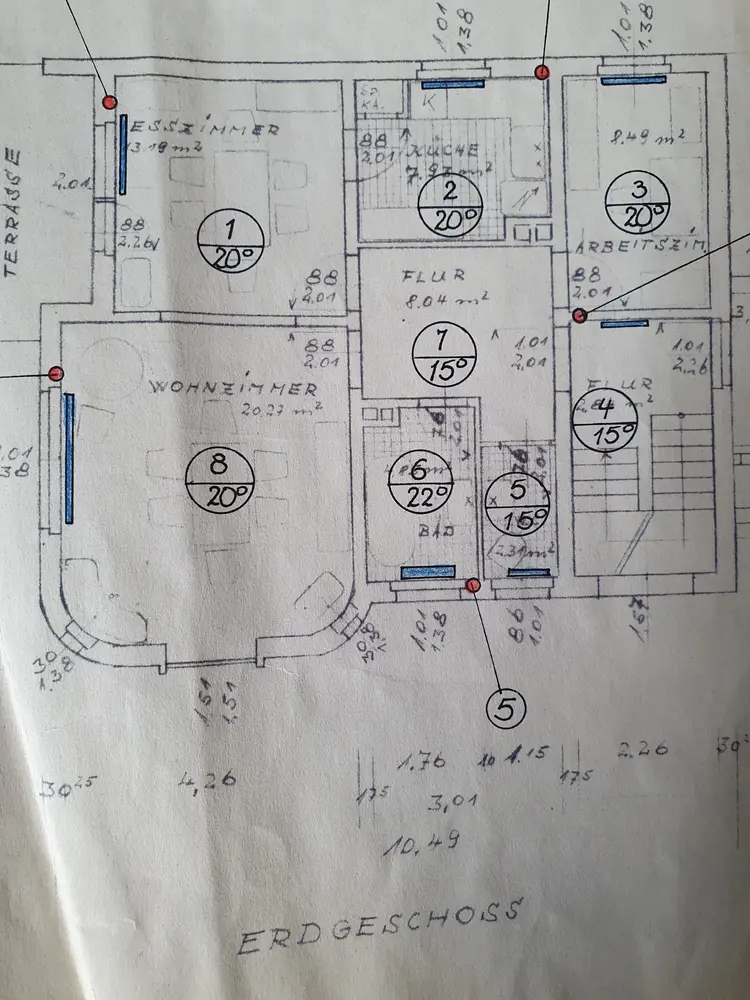 1.01
1.38
1.01
1.38
SP.
KA.
K
ESSZIMMER
13.19 m²
88
2.01
KÜCHE
8.49 m²
TERRASSE
2.01
2
20°
3
20°
1
20°
88
2.26
ARBEITSZIM.
88
2.01
FLUR
8.04 m²
88
2.01
88
2.01
7
15°
1.01
2.01
1.01
2.26
WOHNZIMMER
20.27 m²
FLUR
4
15°
76
2.01
8
20°
6
22°
76
2.01
5
15°
BAD
2.31 m²
30
1.38
30
1.38
1.01
1.38
86
1.01
1.67
1.51
1.51
5
30²⁵
4,26
175
1.76
10
1.15
175
2.26
30
3,01
10,49
ERDGESCHOSS